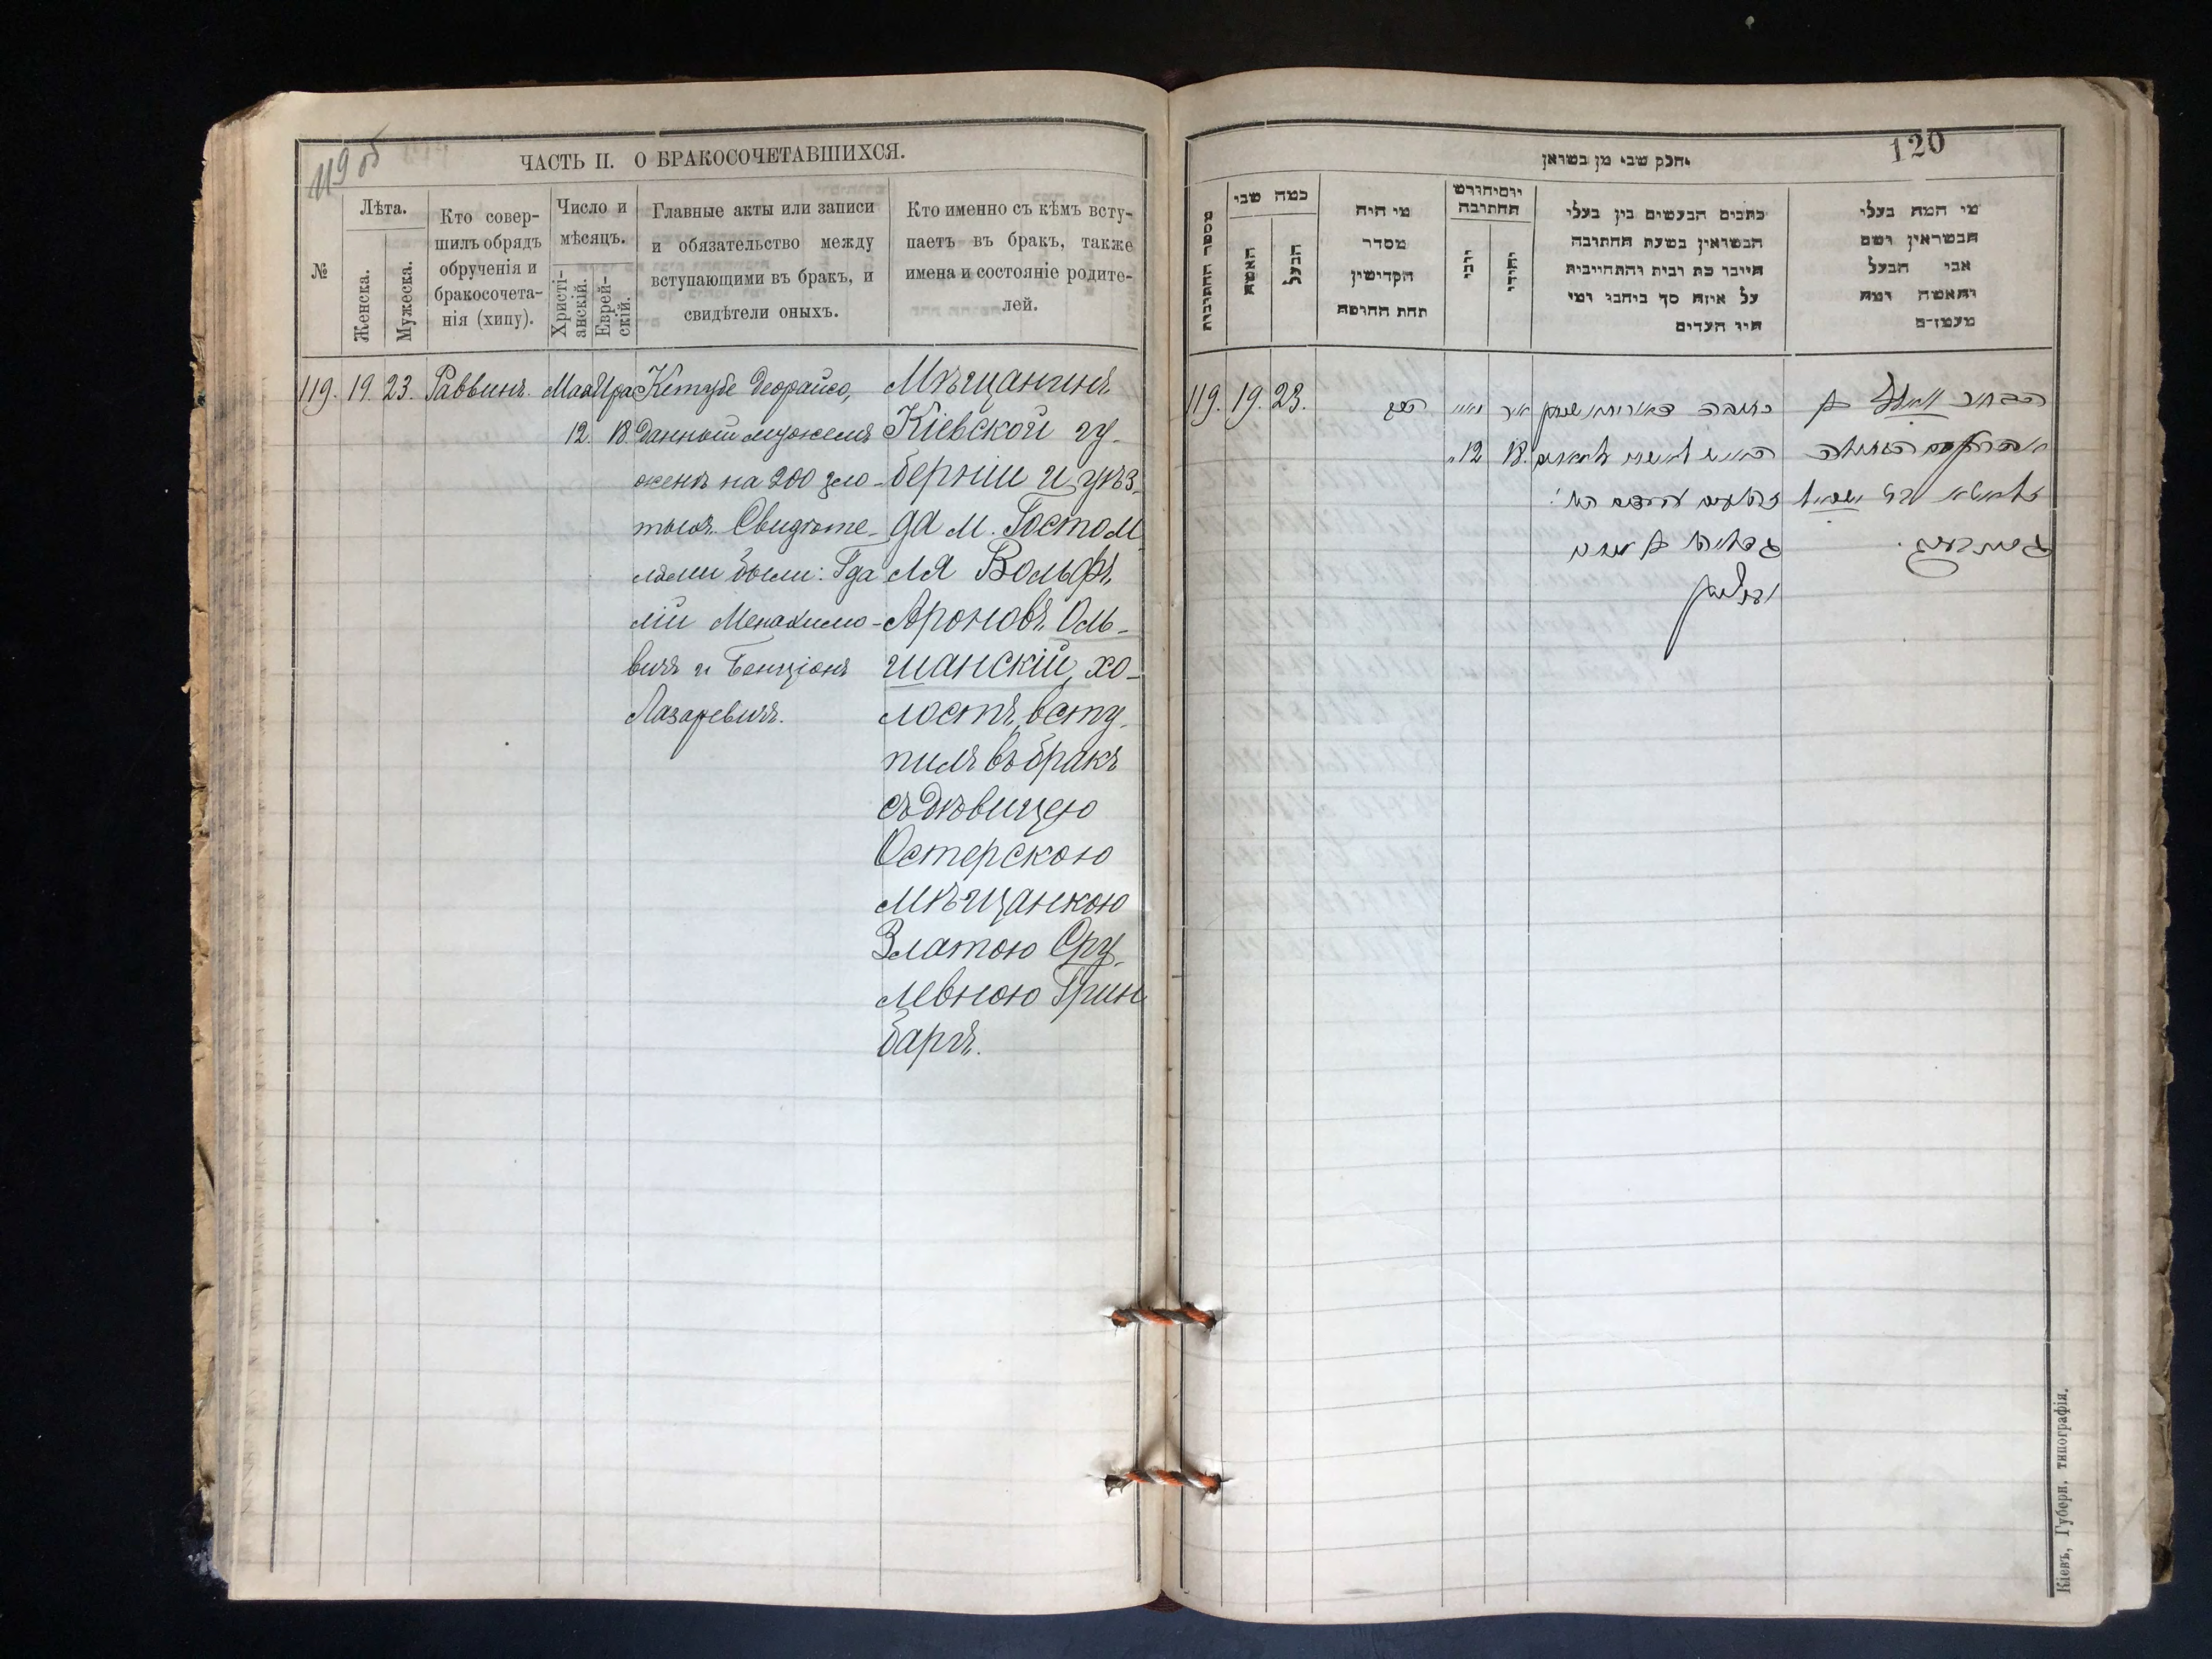 119 об
ЧАСТЬ II. О БРАКОСОЧЕТАВШИХСЯ.
№
Лѣта.
Женска.
Мужеска.
Кто совер-
шилъ обрядъ
обрученія и
бракосочета-
нія (хипу).
Число и
мѣсяцъ.
Христі-
анскій.
Еврей-
скій.
Главные акты или записи
и обязательство между
вступающими въ бракъ, и
свидѣтели оныхъ.
Кто именно съ кѣмъ всту-
паетъ въ бракъ, также
имена и состояніе родите-
лей.
119. 19. 23. Раввинъ. Мая Ира
12. 18.
Кетубе деорайсо,
данный мужемъ
женѣ на 200 зло-
тыхъ. Свидѣте-
лями были: Гда
лій Менахимо-
вичъ и Бенціонъ
Лазаревичъ.
Мѣщанинъ
Кіевской гу-
берніи и уѣз-
да м. Гостом
ля Вольфъ
Ароновъ Оль-
шанскій, хо-
лостъ, всту-
пилъ въ бракъ
съ дѣвицею
Остерскою
мѣщанкою
Златою Сру-
левною Грин
баргъ.
120
וחלק שני מן נשואן
מספר החתונות
כמה שני
האשה
הבעל
מי היה
מסדר
הקדושין
תחת החופה
יום וחודש
החתונה
יוני
יהודי
כתבים הנעשים בין בעלי
הנשואין בשעת החתונה
היינו כת ובית והתחייבות
על איזה סך ביהבו ומי
היו העדים
מי המה בעלי
הנשואין ושם
אבי הבעל
והאשה ומה
מעמדם
119. 19. 23.
הרב
מאי אייר
12. 18.
כתובה דאורייתא
הבחור
הבתולה
זלאטא
גרינבערג.
Кіевъ, Губерн. типографія.